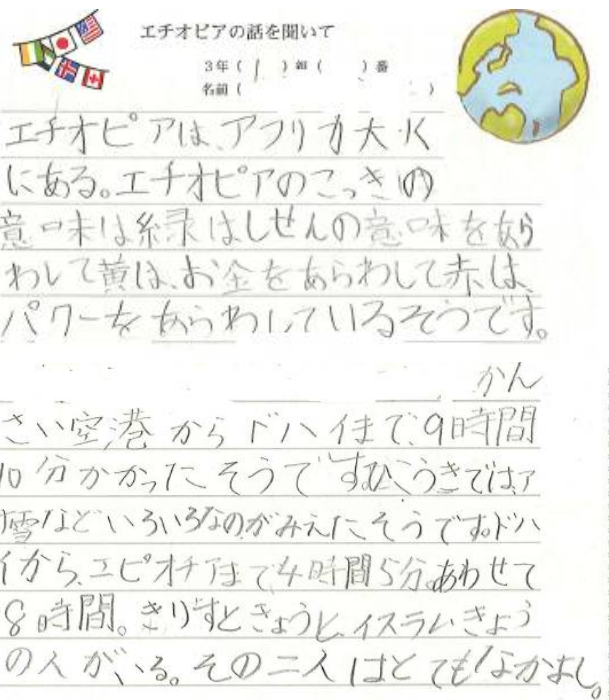 エチオピアの話を聞いて
3年( 1 )組( )番
名前( )
エチオピアは、アフリカ大
にある。エチオピアのこっきの
意味は緑はしせんの意味をあら
わして黄は、お金をあらわして赤は、
パワーをあらわしているそうです。
かん
さい空港からドバイまで、9時間
10分かかったそうですひこうきでは、ア
雪などいろいろなのがみえたそうです。ドバ
イから、エピオチアまで4時間5分。あわせて
8時間。きりすときょうと、イスラムきょう
の人が、いる。その二人はとてもなかよし。